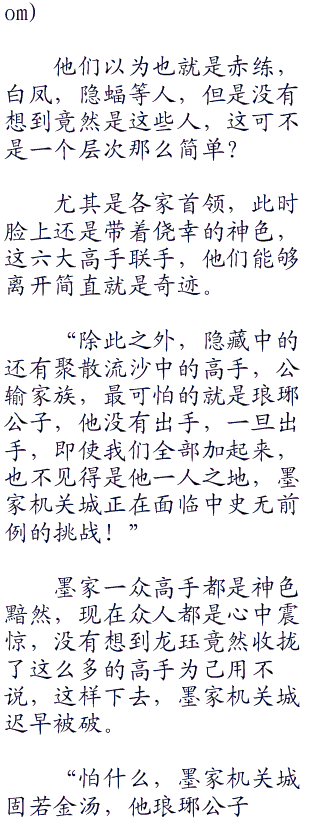 om)
他们以为也就是赤练，
白凤，隐蝠等人，但是没有
想到竟然是这些人，这可不
是一个层次那么简单？
尤其是各家首领，此时
脸上还是带着侥幸的神色，
这六大高手联手，他们能够
离开简直就是奇迹。
“除此之外，隐藏中的
还有聚散流沙中的高手，公
输家族，最可怕的就是琅琊
公子，他没有出手，一旦出
手，即使我们全部加起来，
也不见得是他一人之地，墨
家机关城正在面临中史无前
例的挑战！”
墨家一众高手都是神色
黯然，现在众人都是心中震
惊，没有想到龙珏竟然收拢
了这么多的高手为己用不
说，这样下去，墨家机关城
迟早被破。
“怕什么，墨家机关城
固若金汤，他琅琊公子